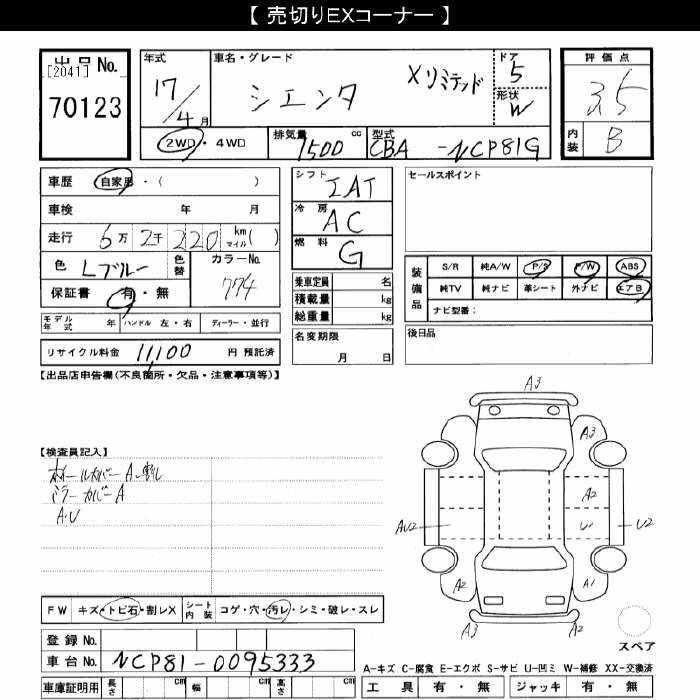 【 売切りEXコーナー 】
出品 No.
[2041]
70123
年式
17/4月
車名・グレード
シエンタ Xリミテッド
ドア 5
形状 W
評価点
3.5
内装 B
2WD・4WD
排気量 1500 cc
型式 CBA-NCP81G
車歴 自家用・( )
車検 年 月
走行 6万2千220 km マイル( )
色 Lブルー 色替
カラーNo. 774
保証書 有・無
モデル年式 年 ハンドル 左・右 ディーラー・並行
リサイクル料金 11,100 円 預託済
シフト IAT
冷房 AC
燃料 G
乗車定員 名
積載量 kg
総重量 kg
名変期限
月 日
セールスポイント
装備品
S/R 純A/W P/S P/W ABS
純TV 純ナビ 革シート 外ナビ エアB
ナビ型番:
後日品
【出品店申告欄(不良箇所・欠品・注意事項等)】
【検査員記入】
ホイールカバーA、割レ
ミラーカバーA
A・U
A3
A3
A2
AU2
U
U2
A2
A1
A3
A2
スペア
FW キズ・トビ石・割レX
シート内装 コゲ・穴・汚レ・シミ・破レ・スレ
登録 No.
車台 No. NCP81-0095333
車庫証明用 長さ cm 幅 cm 高さ cm
A-キズ C-腐食 E-エクボ S-サビ U-凹ミ W-補修 XX-交換済
工具 有・無 ジャッキ 有・無